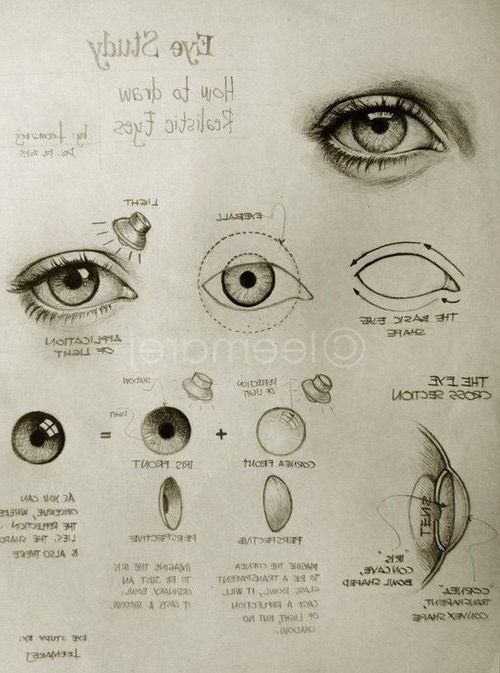 Eye Study
How to draw
Realistic Eyes
by: leemarej
LIGHT
EYEBALL
THE BASIC EYE
SHAPE
APPLICATION
OF LIGHT
©leemarej
THE EYE
CROSS SECTION
REFLECTION
OF LIGHT
SHADOW
LIGHT
CORNEA FRONT
+
IRIS FRONT
=
PERSPECTIVE
PERSPECTIVE
LENS
"IRIS"
CONCAVE,
BOWL SHAPED
"CORNEA"
TRANSPARENT,
CONVEX SHAPE
IMAGINE THE CORNEA
TO BE A TRANSPARENT
GLASS BOWL, IT WILL
CAST A REFLECTION
OF LIGHT BUT NO
SHADOW.
IMAGINE THE IRIS
TO BE JUST AN
ORDINARY BOWL.
IT CASTS A SHADOW.
AS YOU CAN
OBSERVE, WHERE
THE REFLECTION
LIES, THE SHADOW
IS ALSO THERE
EYE STUDY BY:
LEEMAREJ